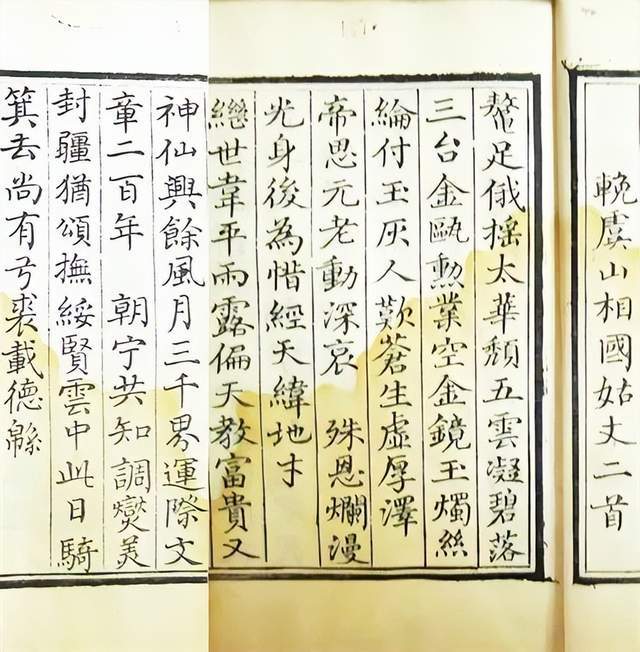 輓虞山相國姑丈二首
鰲足俄搖太華頹五雲凝碧落
三台金甌勳業空金鏡玉燭絲
綸付玉灰人歎蒼生虛厚澤
帝思元老動深哀 殊恩爛漫
光身後為惜經天緯地才
繼世韋平雨露偏天教富貴又
神仙興餘風月三千界運際文
章二百年 朝宁共知調燮美
封疆猶頌撫綏賢雲中此日騎
箕去尚有弓裘載德緜